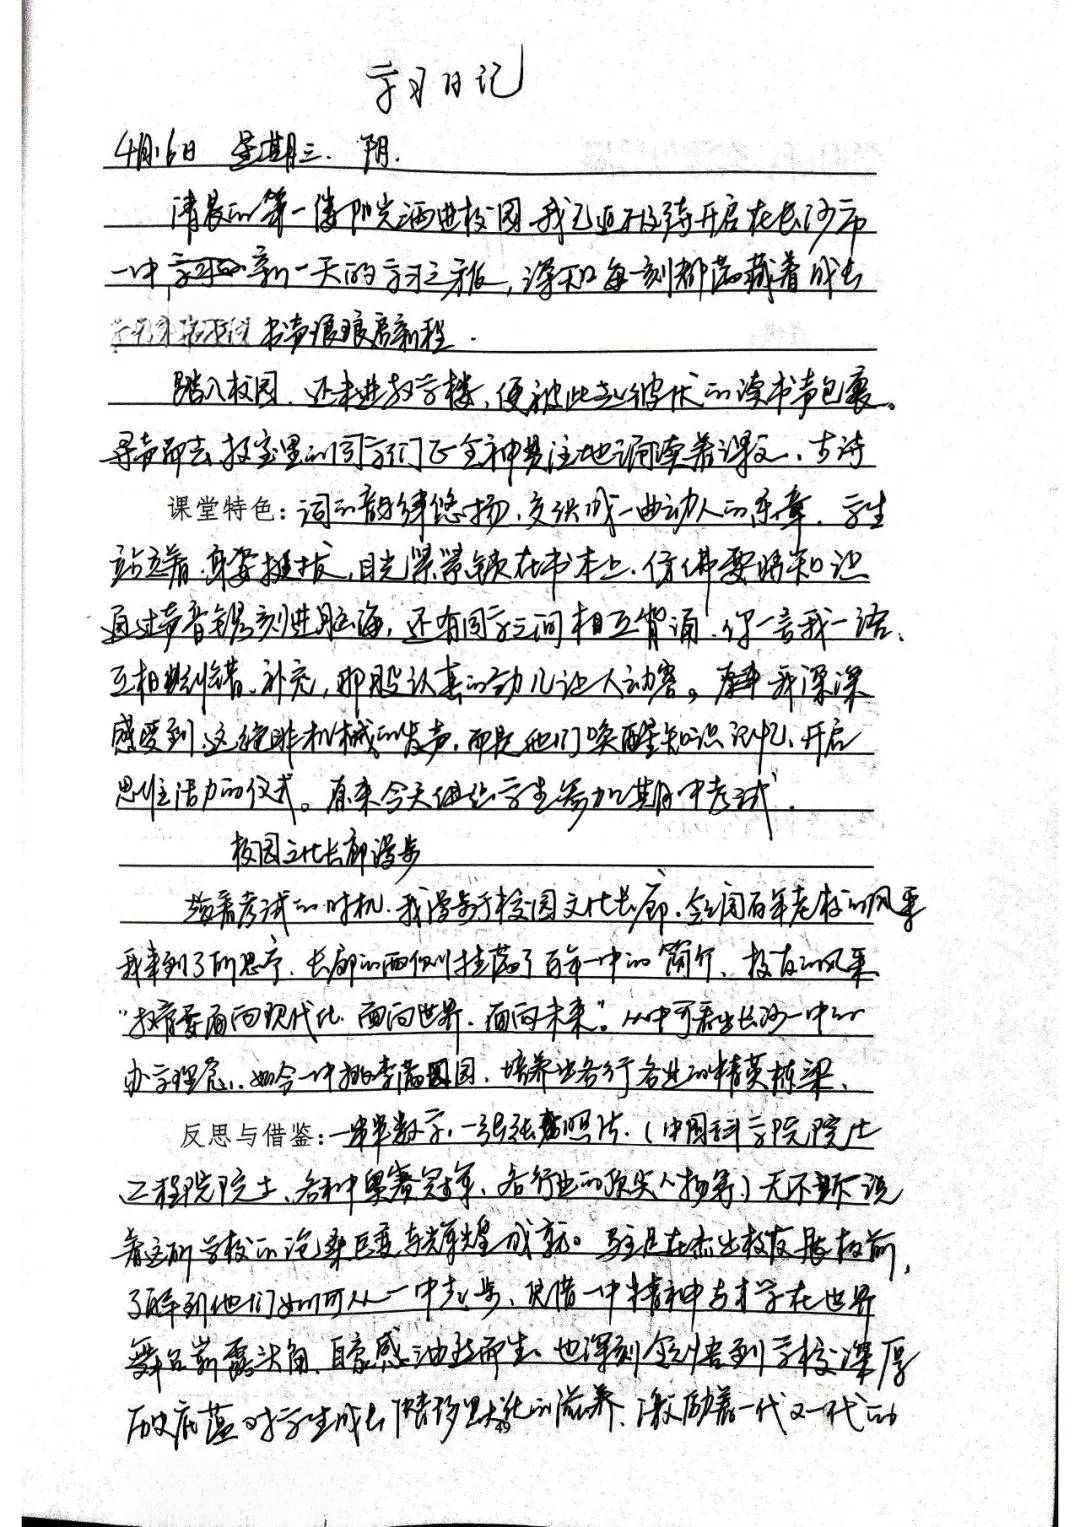 学习日记
4月16日 星期三. 阴.
清晨的第一缕阳光洒进校园,我已迫不及待开启在长沙市
一中新一天的学习之旅,深知每一刻都蕴藏着成长
书声琅琅启新程.
踏入校园、还未进教学楼,便被此起彼伏的读书声包裹。
寻声而去教室里的同学们正全神贯注地诵读着课文、古诗
课堂特色:词的韵律悠扬,交织成一曲动人的乐章。学生
站立着,身姿挺拔,目光紧紧锁在书本上,仿佛要将知识
通过声音镌刻进脑海,还有同学之间相互背诵,你一言我一语、
互相纠错、补充,那股认真的劲儿让人动容。我深深
感受到,这绝非机械的发声,而是他们唤醒知识记忆、开启
思维活力的仪式。原来今天学生参加期中考试.
校园文化长廊漫步
趁着考试的时机,我漫步于校园文化长廊,领阅百年老校的风采
我来到了所思亭,长廊的两侧挂满了百年一中的简介、校友的风采
"教育要面向现代化 面向世界,面向未来"。从中可看出长沙一中的
办学理念,如今一中桃李满园,培养出各行各业的精英栋梁、
反思与借鉴:一串串数字,一张张照片,(中国科学院院士
工程院院士、各种奥赛冠军、各行业的顶尖人物等)无不诉说
着这所学校的沧桑巨变与辉煌成就。驻足在杰出校友展板前,
了解到他们如何从一中起步、凭借一中精神与才学在世界
舞台崭露头角,自豪感油然而生。也深刻领悟到学校深厚
历史底蕴对学生成长潜移默化的滋养,激励着一代又一代的
49